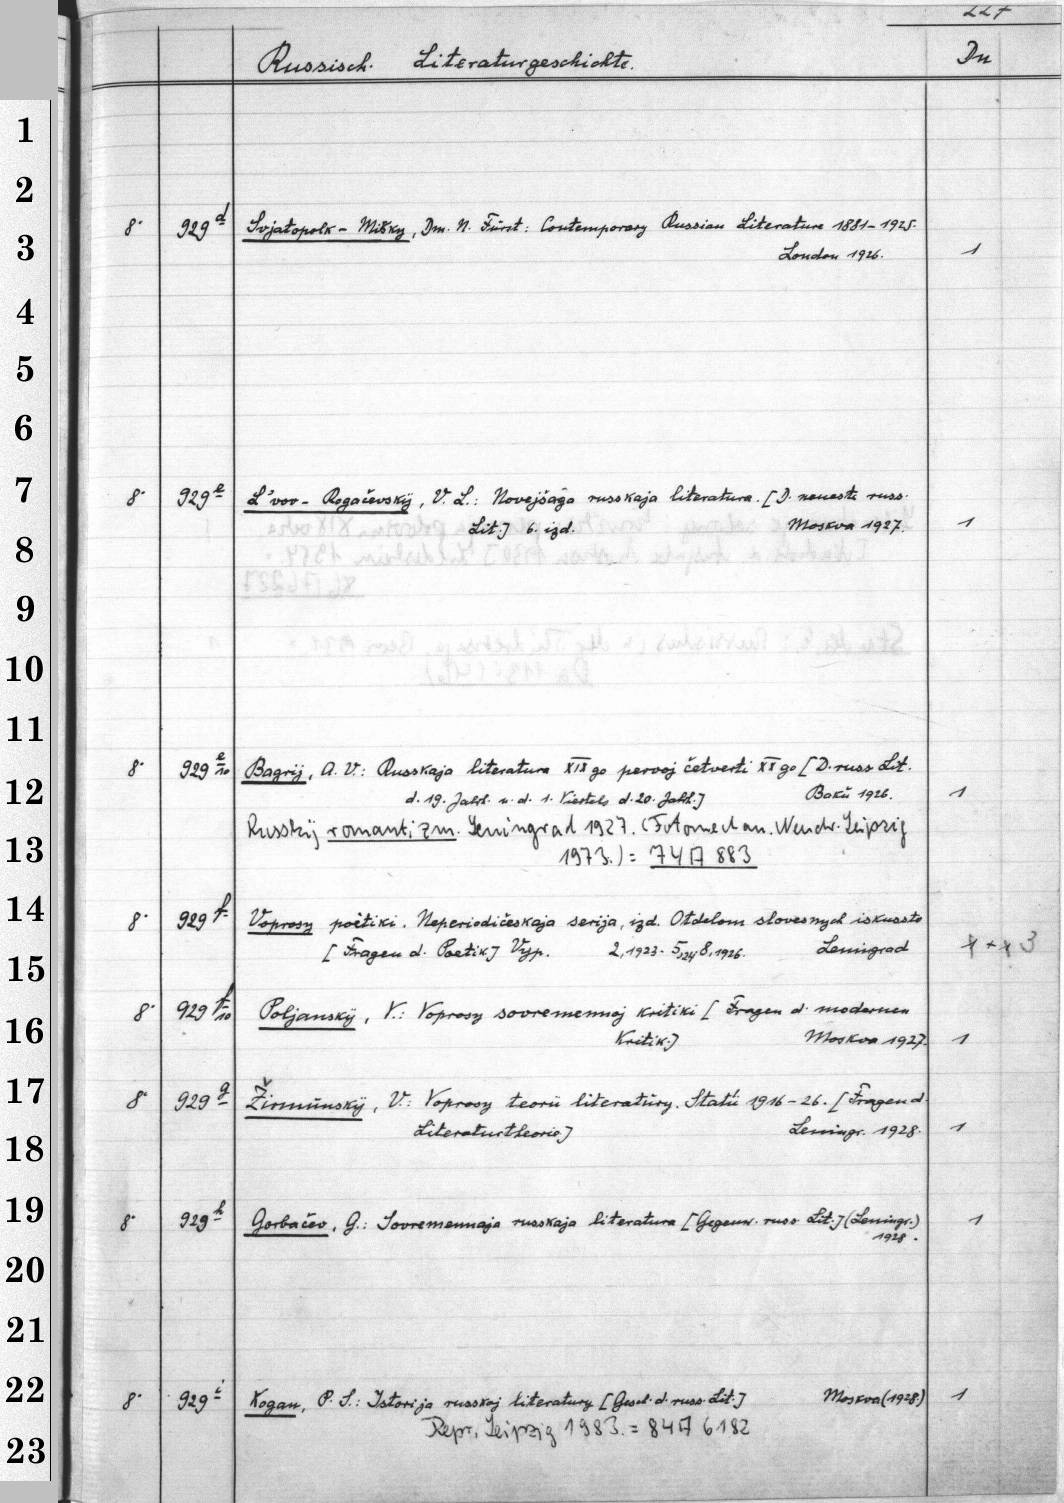 227
Russisch. Literaturgeschichte. Du
1
2
8° 929 d Svjatopolk-Mirsky, Dm. N. Fürst: Contemporary Russian Literature 1881-1925.
3
London 1926. 1
4
5
6
7
8° 929 e L'vov-Rogačevskij, V. L.: Novejšaja russkaja literatura. [D. neueste russ.
Lit.] 6. izd. Moskva 1927. 1
8
9
10
11
8° 929 e/10 Bagrij, A. V.: Russkaja literatura XIXgo pervoj četverti XXgo [D. russ. Lit.
12
d. 19. Jahrh. u. d. 1. Viertels d. 20. Jahh.] Baku 1926. 1
Russkij romantizm. Leningrad 1927. (Fotomechan. Neudr. Leipzig
13
1973.) = 74 A 883
14
8° 929 f Voprosy poètiki. Neperiodičeskaja serija, izd. Otdelom slovesnych iskusstv
[Fragen d. Poetik] Vyp. 2,1923-5,24 8,1926. Leningrad 3
15
8° 929 f/10 Poljanskij, V.: Voprosy sovremennoj kritiki [Fragen d. modernen
16
Kritik.] Moskva 1927. 1
17
8° 929 g Žirmunskij, V.: Voprosy teorii literatury. Statii 1916-26. [Fragen d.
Literaturtheorie] Leningr. 1928. 1
18
19
8° 929 h Gorbačev, G.: Sovremennaja russkaja literatura [Gegenw. russ. Lit.] (Leningr.) 1
1928.
20
21
22
8° 929 i Kogan, P. S.: Istorija russkoj literatury [Gesch. d. russ. Lit.] Moskva (1928) 1
Repr. Leipzig 1983. = 84 A 6182
23